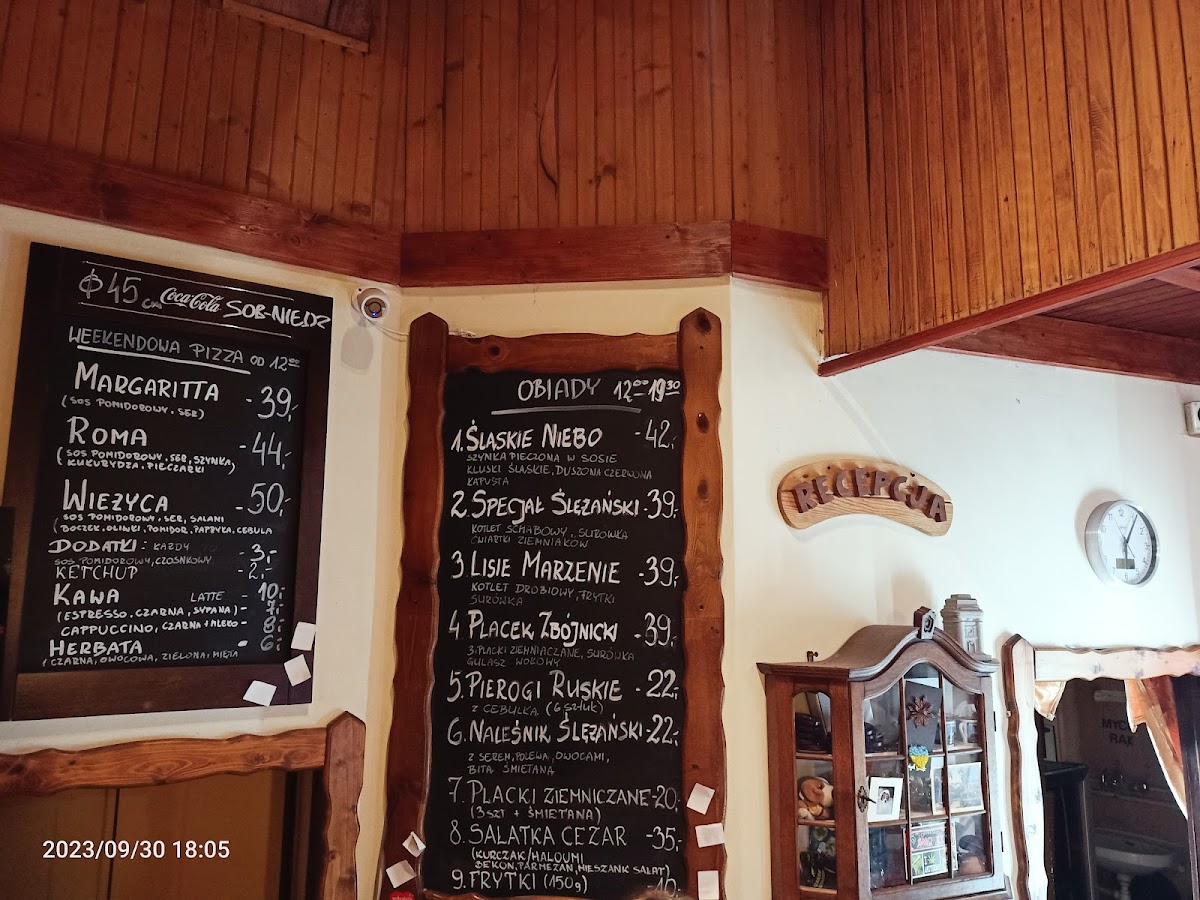 Φ45 cm Coca-Cola SOB-NIEDZ
WEEKENDOWA PIZZA OD 12⁰⁰
MARGARITTA - 39,-
(SOS POMIDOROWY, SER)
ROMA - 44,-
(SOS POMIDOROWY, SER, SZYNKA
KUKURYDZA, PIECZARKI)
WIEŻYCA - 50,-
(SOS POMIDOROWY, SER, SALAMI
BOCZEK, OLIWKI, POMIDOR, PAPRYKA, CEBULA
DODATKI: KAŻDY - 3,-
SOS POMIDOROWY, CZOSNKOWY
KETCHUP - 2,-
KAWA LATTE - 10,-
(ESPRESSO, CZARNA, SYPANA) - 7,-
CAPPUCCINO, CZARNA + MLEKO - 8,-
HERBATA - 6,-
(CZARNA, OWOCOWA, ZIELONA, MIĘTA
OBIADY 12⁰⁰-19³⁰
1. ŚLĄSKIE NIEBO - 42,-
SZYNKA PIECZONA W SOSIE
KLUSKI ŚLĄSKIE, DUSZONA CZERWONA
KAPUSTA
2. SPECJAŁ ŚLĘŻAŃSKI - 39,-
KOTLET SCHABOWY, SURÓWKA
ĆWIARTKI ZIEMNIAKÓW
3. LISIE MARZENIE - 39,-
KOTLET DROBIOWY, FRYTKI
SURÓWKA
4 PLACEK ZBÓJNICKI - 39,-
3 PLACKI ZIEMNIACZANE, SURÓWKA
GULASZ WOŁOWY
5. PIEROGI RUSKIE - 22,-
Z CEBULKĄ (6 SZTUK)
6. NALEŚNIK ŚLĘŻAŃSKI - 22,-
Z SEREM, POLEWĄ, OWOCAMI,
BITĄ ŚMIETANĄ
7. PLACKI ZIEMNICZANE - 20,-
(3 SZT + ŚMIETANA)
8. SAŁATKA CEZAR - 35,-
(KURCZAK/HALOUMI
BEKON, PARMEZAN, MIESZANK SAŁAT)
9. FRYTKI (150g) - 10,-
RECEPCJA
RĄK
2023/09/30 18:05